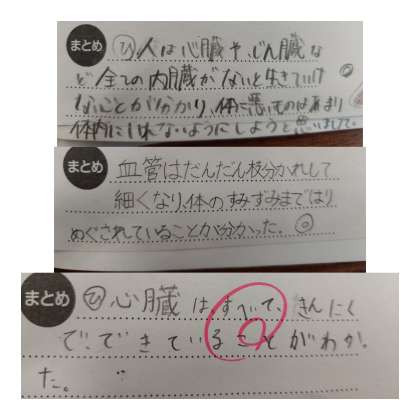 まとめ ㋪人は心臓や、じん臓な
ど全ての内臓がないと生きていけ
ないことが分かり、体に悪いものはあまり
体内にいれないようにしようと思いました。
まとめ 血管はだんだん枝分かれして
細くなり、体のすみずみまではり
めぐされていることが分かった。
まとめ ㋪心臓はすべて、きんにく
で、できていることがわかっ
た。